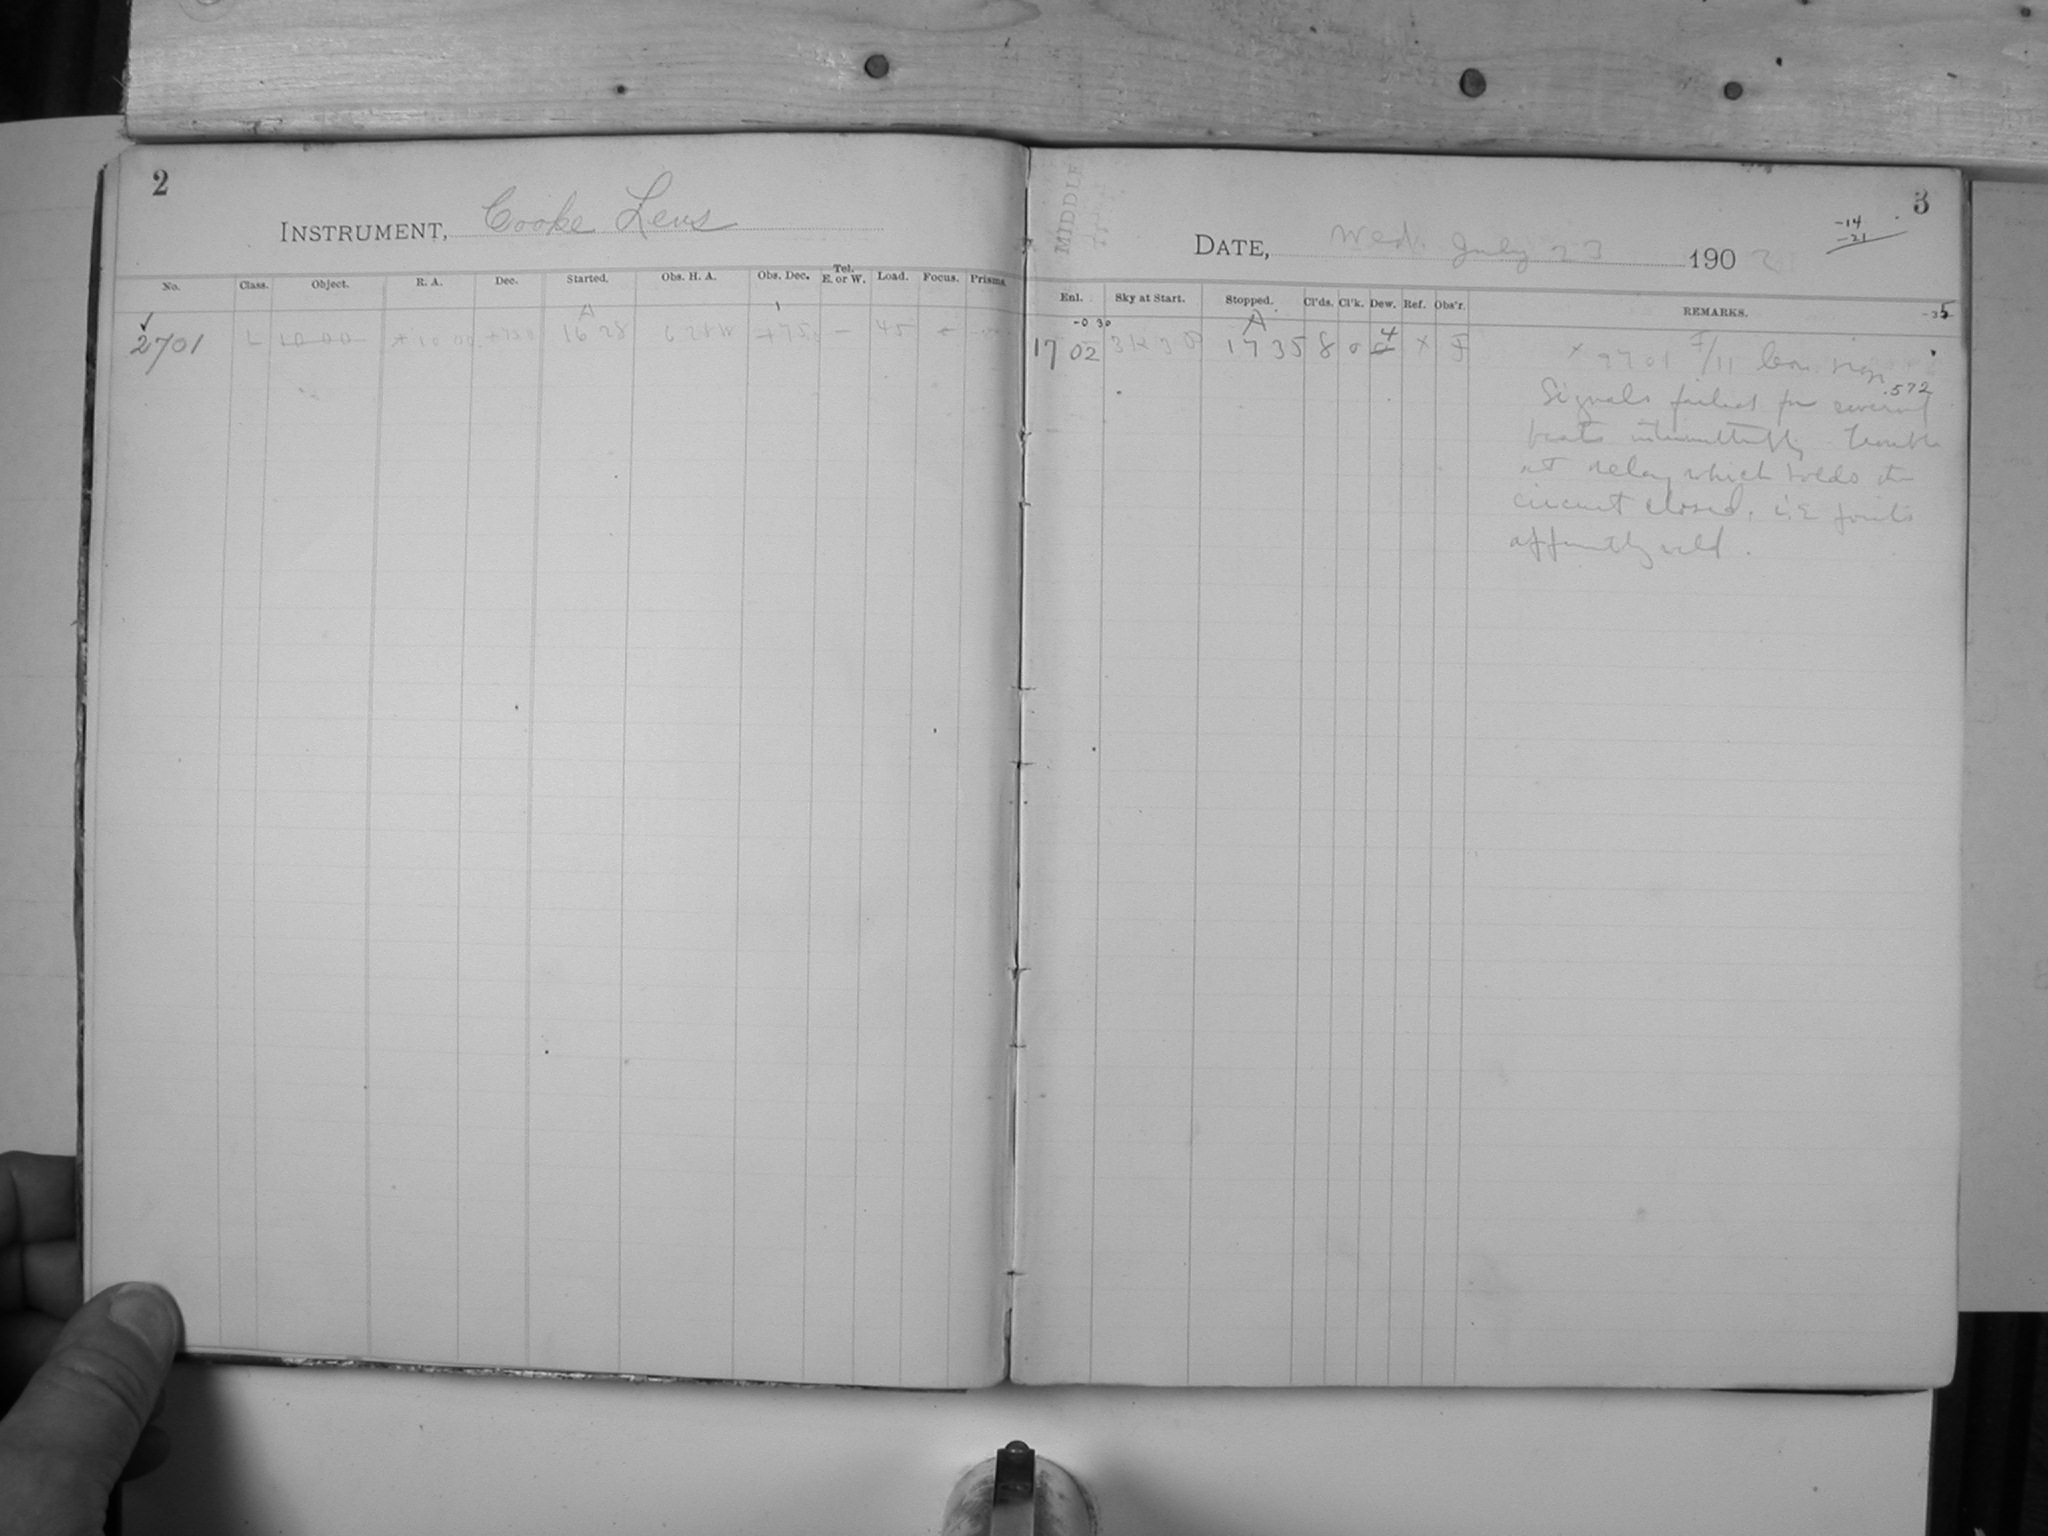 2
INSTRUMENT, Cooke Lens
No. Class. Object. R. A. Dec. Started. Obs. H. A. Obs. Dec. Tel. E. or W. Load. Focus. Prisms.
A
2701 L 10 00 +75 0 16 28 6 28 W +75 — 45
MIDDLE
3
-14
-21
DATE, Wed. July 23 1902
Enl. Sky at Start. Stopped. Cl'ds. Cl'k. Dew. Ref. Obs'r. REMARKS.
-0 30 A
17 02 17 35 8 0 4 x F
x 2701 F/11
.572
Signals failed for several
beats intermittently trouble
at relay which holds the
circuit closed. i.e points
apparently weld.